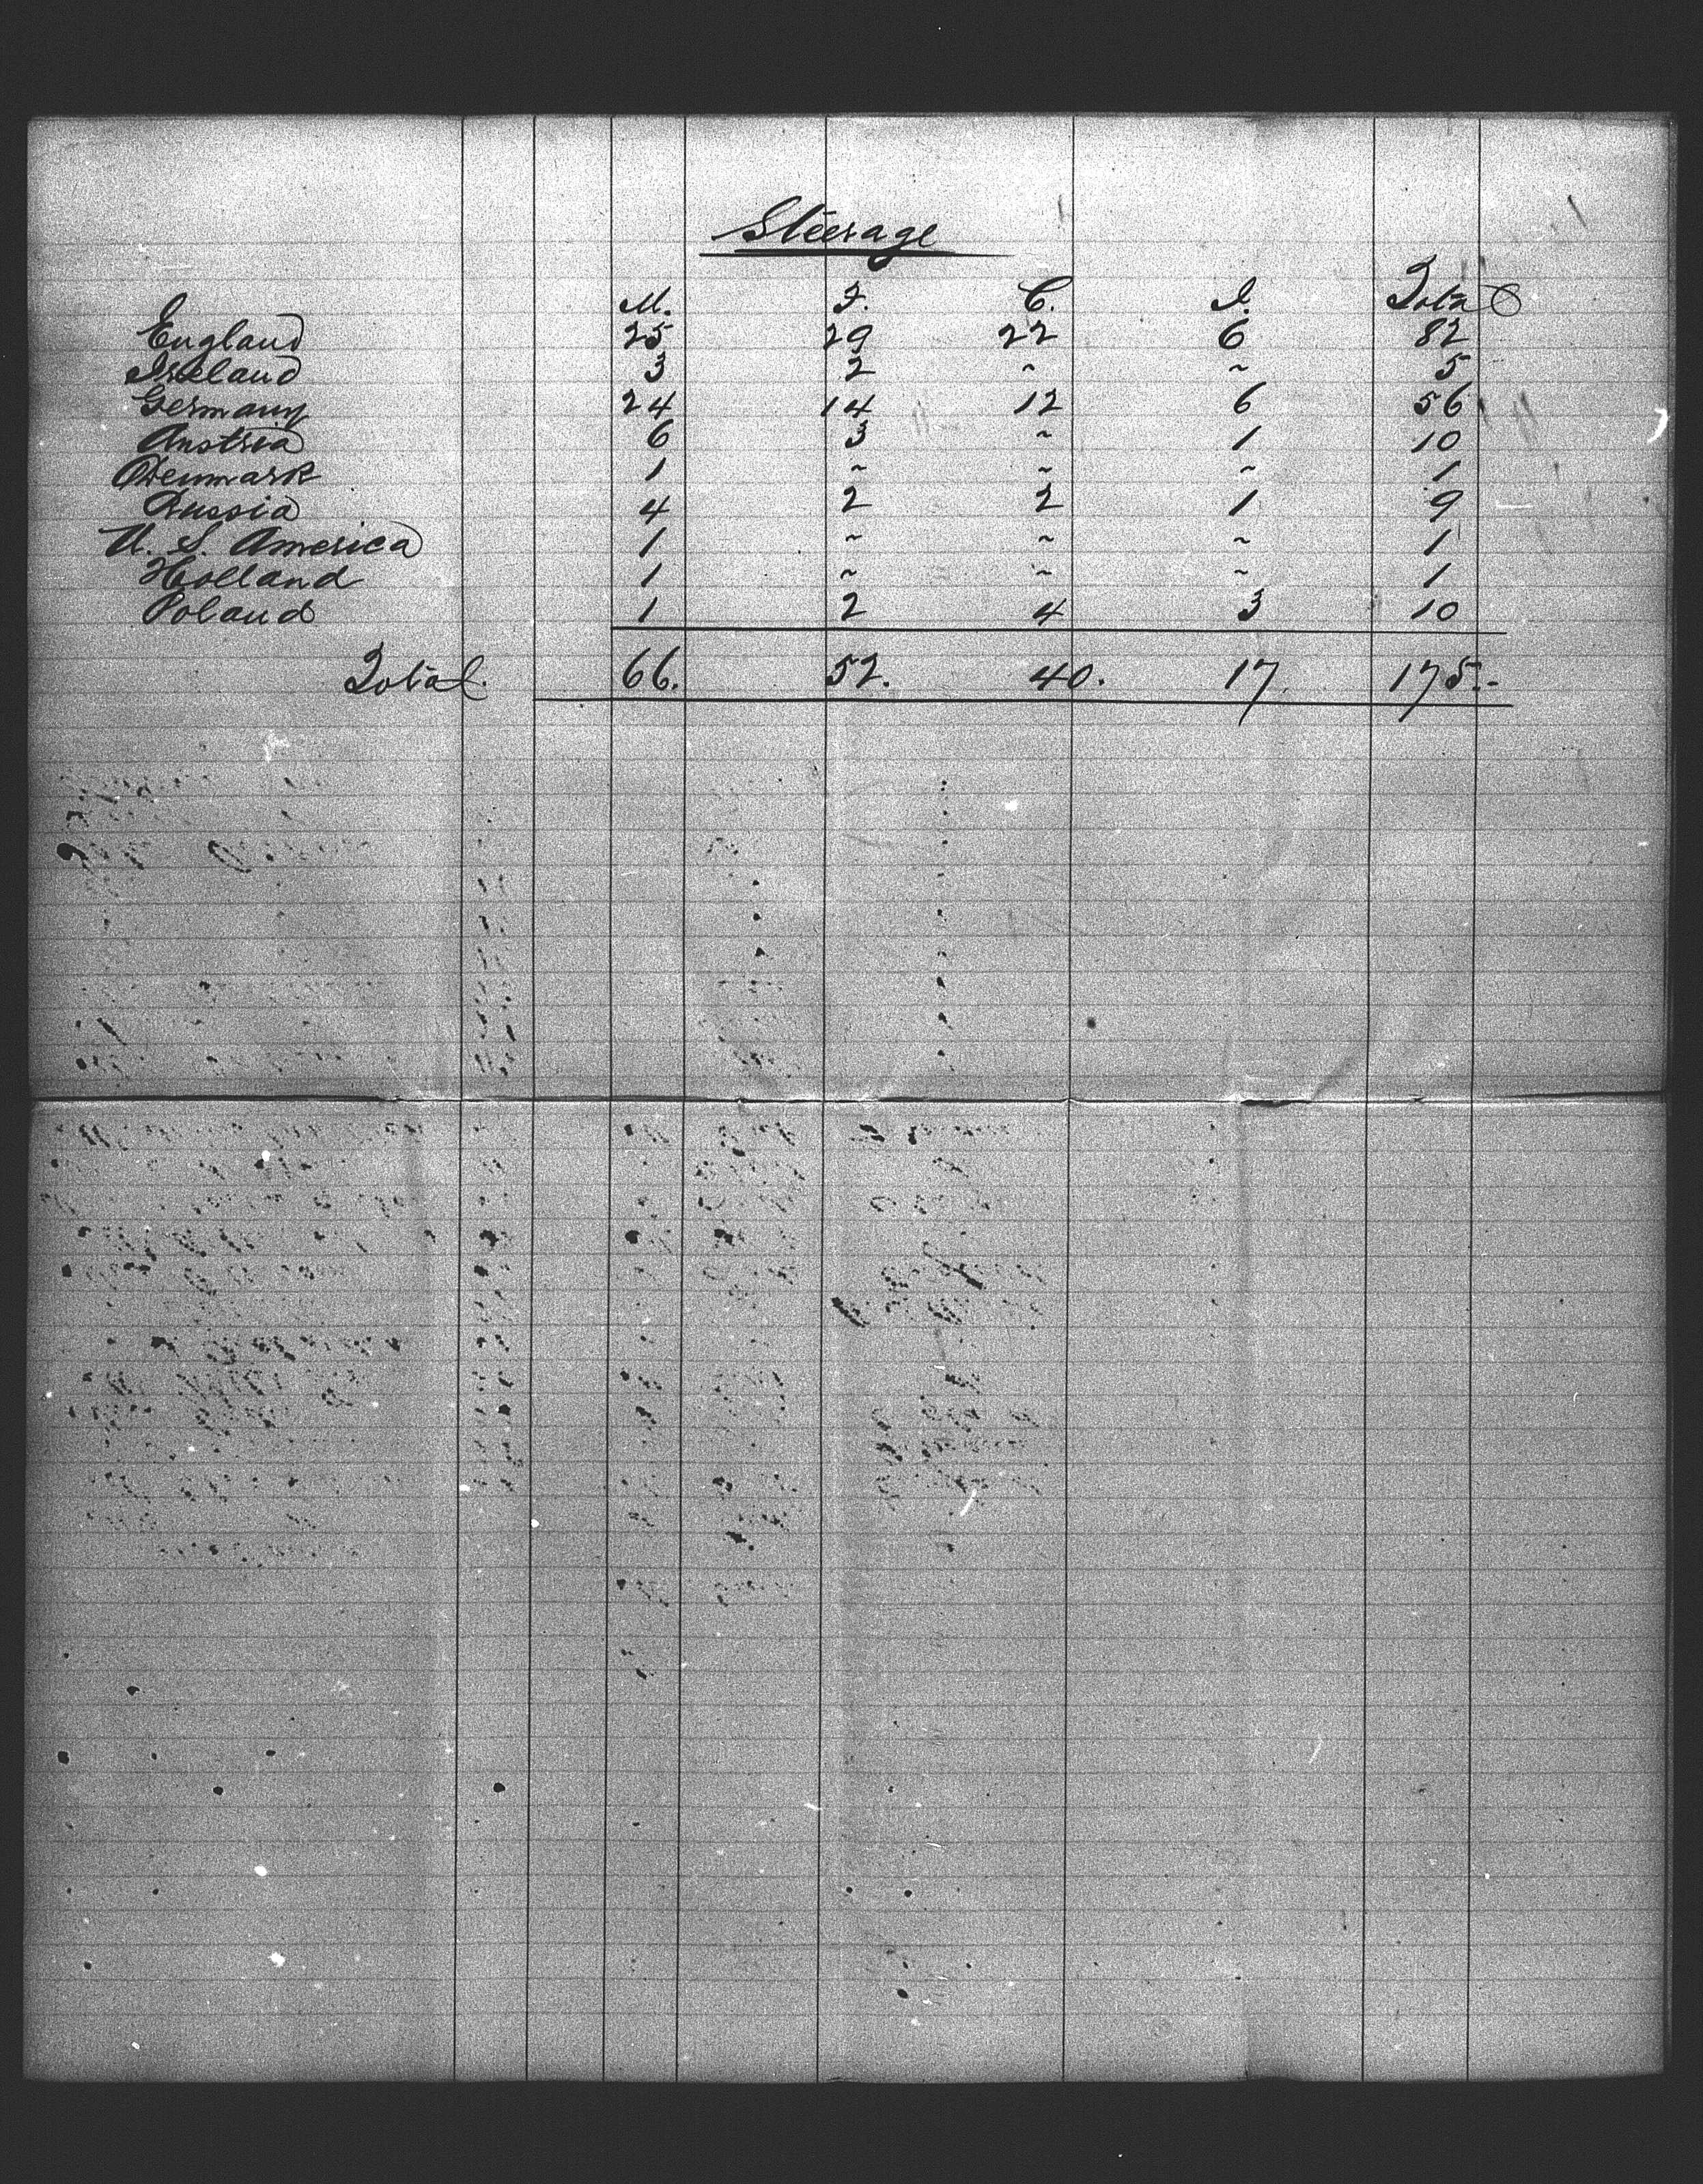 Steerage
M. F. C. I. Total
England 25 29 22 6 82
Ireland 3 2 ~ ~ 5
Germany 24 14 12 6 56
Austria 6 3 ~ 1 10
Denmark 1 ~ ~ ~ 1
Russia 4 2 2 1 9
U. S. America 1 ~ ~ ~ 1
Holland 1 ~ ~ ~ 1
Poland 1 2 4 3 10
Total. 66. 52. 40. 17. 175.-